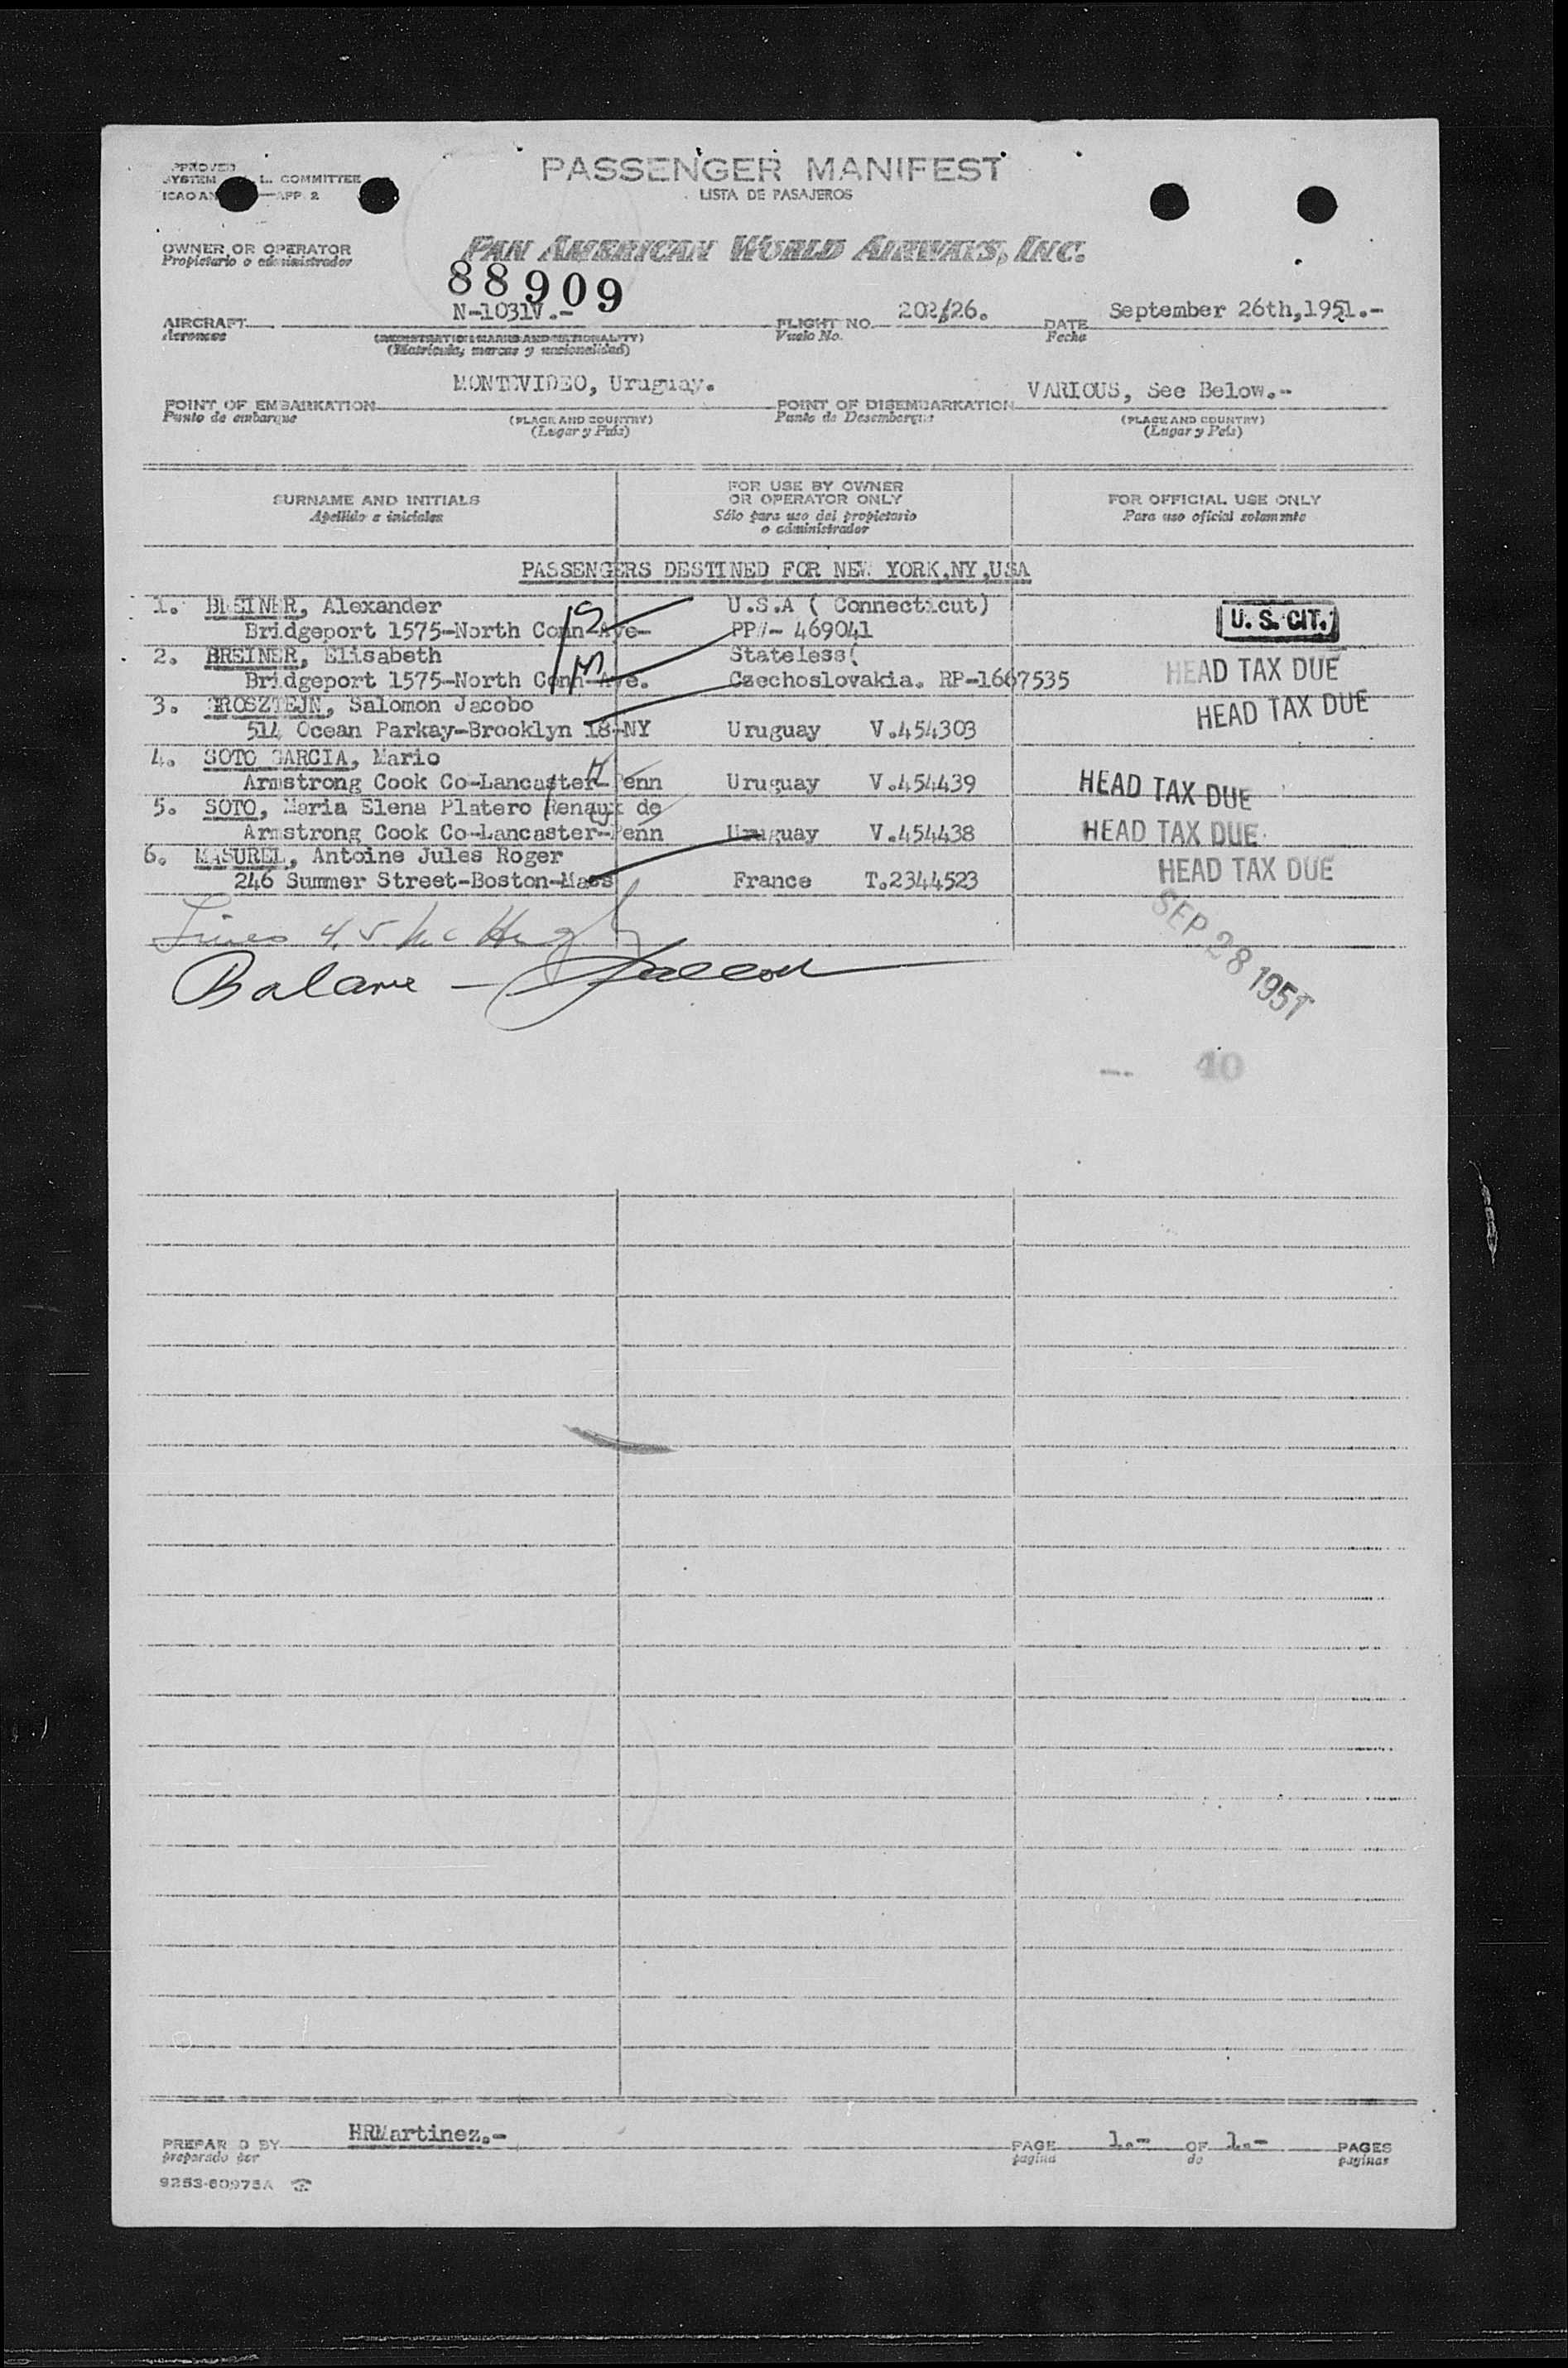 PASSENGER MANIFEST
LISTA DE PASAJEROS
COMMITTEE
APP 2
OWNER OR OPERATOR
Propietario o administrador
PAN AMERICAN WORLD AIRWAYS, INC.
88909
AIRCRAFT N-1031V.- FLIGHT NO. 202/26. DATE September 26th,1951.-
Aeronave Vuelo No. Fecha
(Matrícula, marcas y nacionalidad)
POINT OF EMBARKATION MONTEVIDEO, Uruguay. POINT OF DISEMBARKATION VARIOUS, See Below.-
Punto de embarque (PLACE AND COUNTRY) Punto de Desembarque (PLACE AND COUNTRY)
(Lugar y País) (Lugar y País)
SURNAME AND INITIALS
Apellido e iniciales
FOR USE BY OWNER
OR OPERATOR ONLY
Sólo para uso del propietario
o administrador
FOR OFFICIAL USE ONLY
Para uso oficial solamente
PASSENGERS DESTINED FOR NEW YORK,NY,USA
1. BREINER, Alexander U.S.A ( Connecticut)
Bridgeport 1575-North Conn-Ave- PP#- 469041 U. S. CIT.
2. BREINER, Elisabeth Stateless(
Bridgeport 1575-North Conn-Ave. Czechoslovakia. RP-1667535 HEAD TAX DUE
3. Salomon Jacobo
514 Ocean Parkay-Brooklyn 18-NY Uruguay V.454303 HEAD TAX DUE
4. SOTO GARCIA, Mario
Armstrong Cook Co-Lancaster-Penn Uruguay V.454439 HEAD TAX DUE
5. SOTO, Maria Elena Platero Renaux de
Armstrong Cook Co-Lancaster-Penn Uruguay V.454438 HEAD TAX DUE
6. MASUREL, Antoine Jules Roger
246 Summer Street-Boston-Mass France T.2344523 HEAD TAX DUE
SEP 28 1951
Lines 4, 5
Balance -
40
PREPARED BY HRMartinez.- PAGE 1.- OF 1.- PAGES
preparado por pagina de paginas
9253-60975A